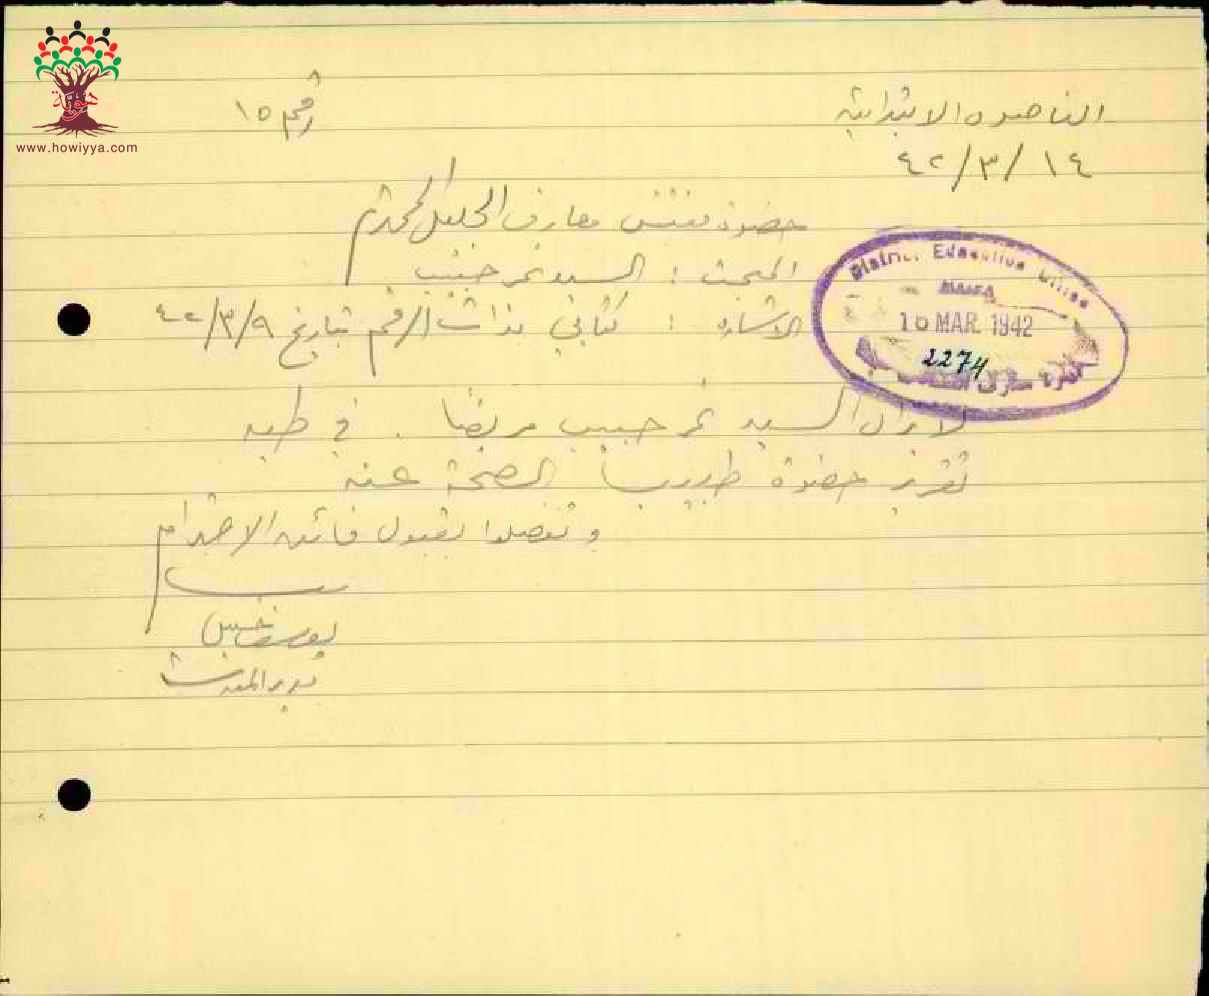 هوية
www.howiyya.com
الناصره الابتدائية
رقم ١٥
١٤/٣/٤٢
حضرة مفتش معارف الجليل المحترم
المبحث : السيد نمر حبيب
الاشاره : كتابي بذات الرقم تاريخ ٩/٣/٤٢
District Education Office
HAIFA
16 MAR. 1942
2274
لا يزال السيد نمر حبيب مريضا . في طيه
تقرير حضرة طبيب الصحة عنه
و تفضلوا بقبول فائق الاحترام
يوسف
مدير المدرسة